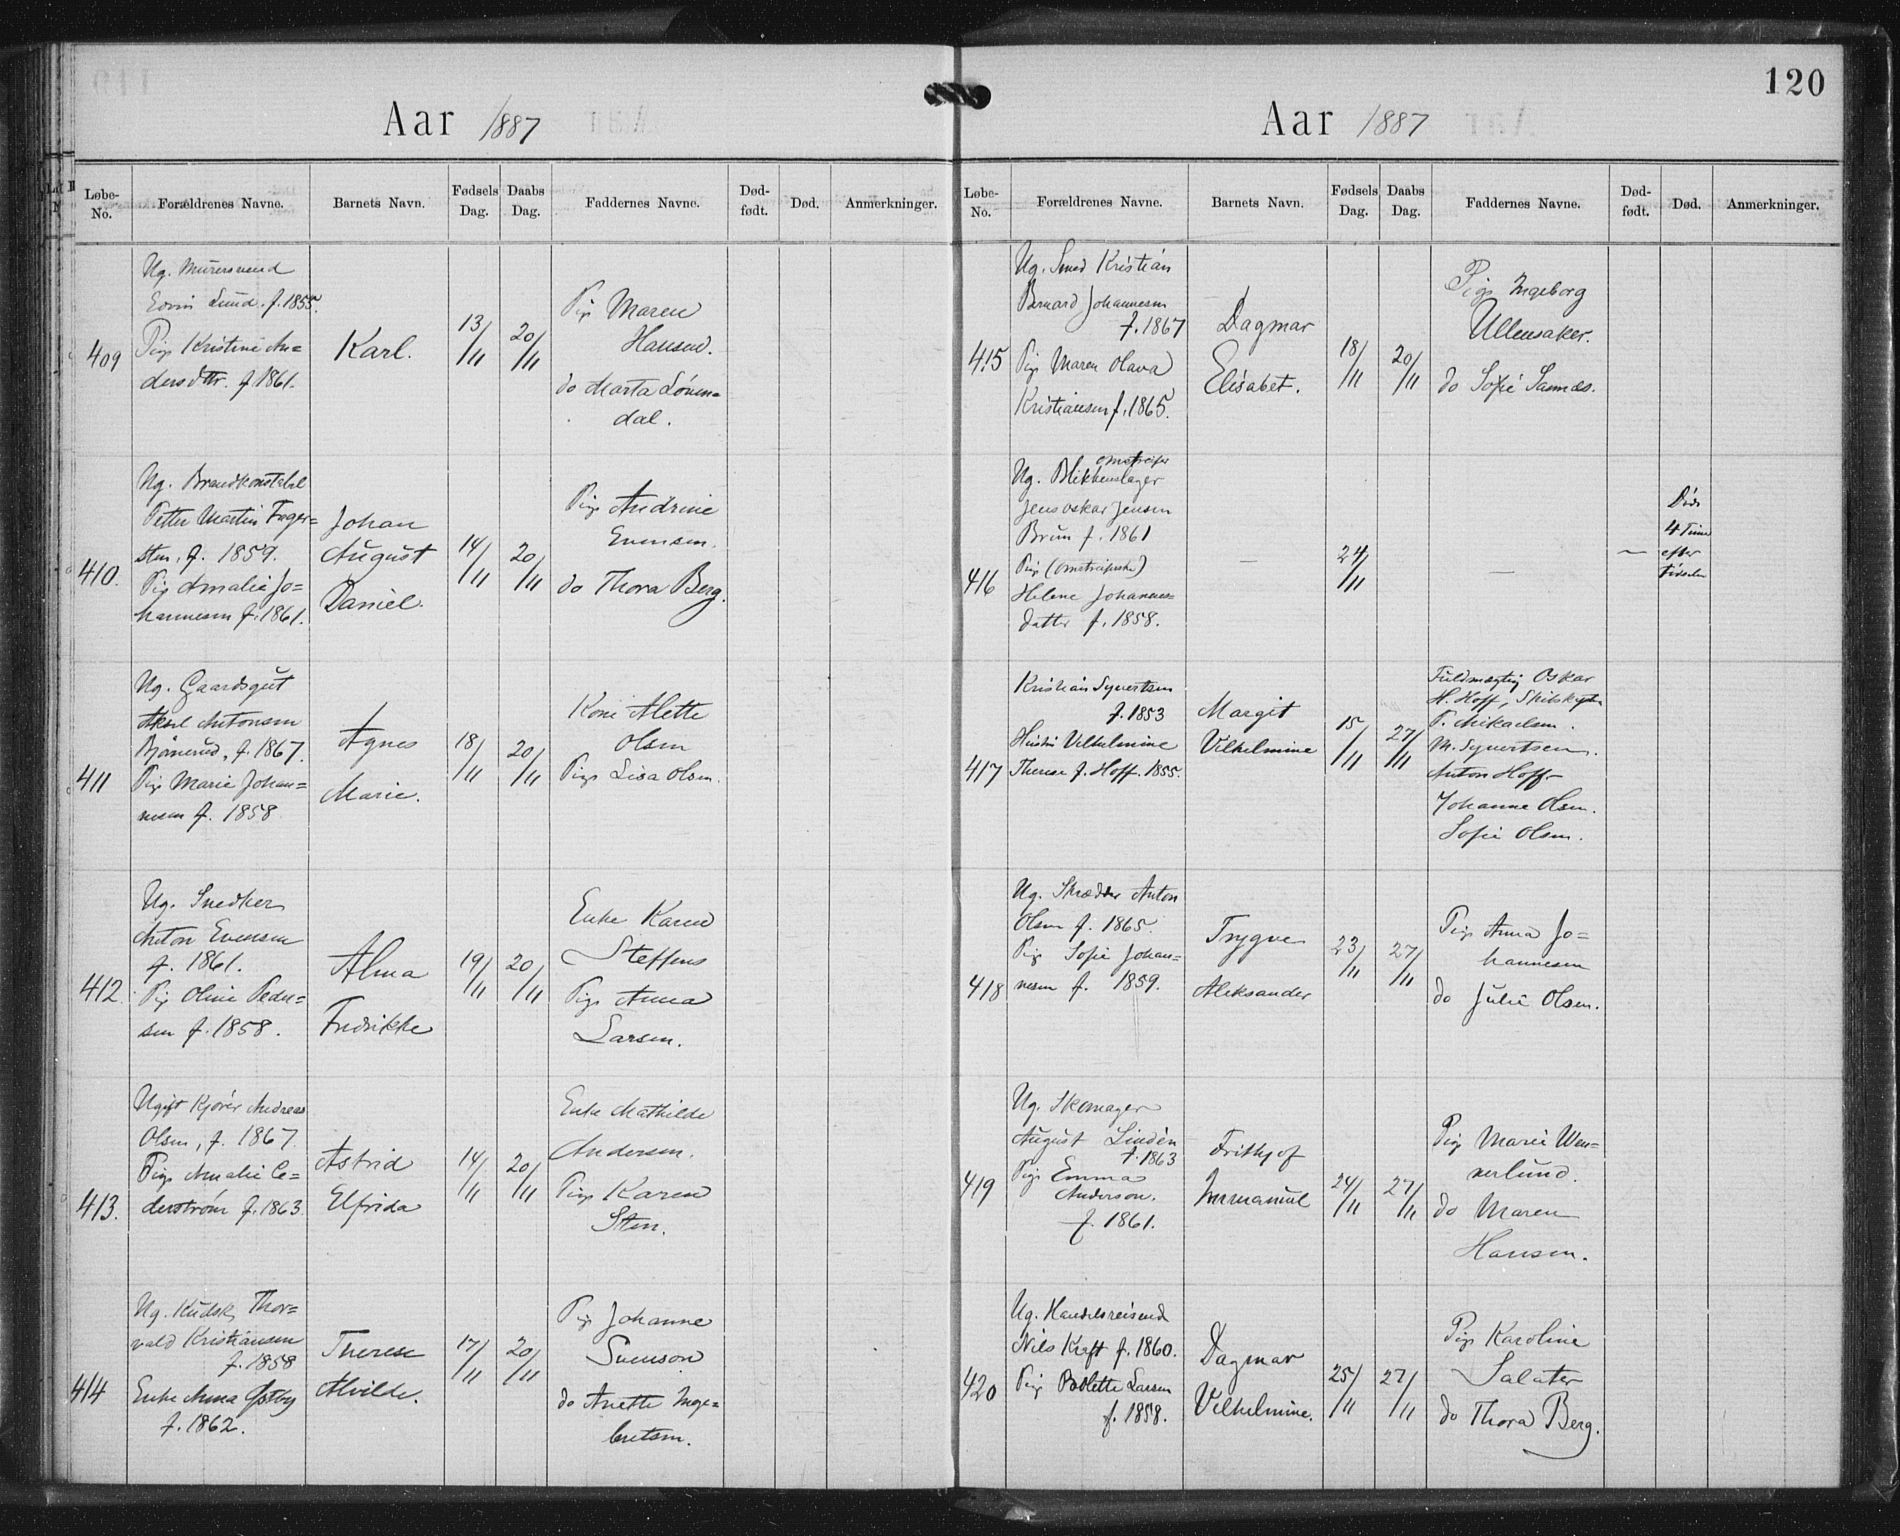 Aar 1887
Løbe-No. Forældrenes Navne. Barnets Navn. Fødsels Dag. Daabs Dag. Faddernes Navne. Død-født. Død. Anmerkninger.
409
Ug. Murersvend
Edvin Lund. f. 1855.
Pige Kristine An=
dersdttr. f. 1861.
Karl.
13/11
20/11
Pige Maren
Hansen.
do Marta Löven=
dal.
410.
Ug. Brandkonstabel
Petter Martin Fager=
sten, f. 1859.
Pige Amalie Jo=
hannesen f. 1861.
Johan
August
Daniel.
14/11
20/11
Pige Andrine
Evensen.
do Thora Berg.
411
Ug. Gaardsgut
Aksel Antonsen
Bjørnerud, f. 1867.
Pige Marie Johan=
nesen f. 1858
Agnes
Marie.
18/11
20/11
Kone Alette
Olsen
Pige Lisa Olsen.
412.
Ug. Snedker
Anton Evensen
f. 1861.
Pige Oline Peder=
sen f. 1858.
Alma
Fredrikke
19/11
20/11
Enke Karen
Steffens
Pige Anna
Larsen.
413.
Ugift Kjører Andreas
Olsen, f. 1867.
Pige Amalie Ce=
derstrøm f. 1863
Astrid
Elfrida
14/11
20/11
Enke Mathilde
Andersen.
Pige Karen
Sten.
414
Ug. Kudsk Thor=
vald Kristiansen
f. 1858
Enke Anna Østby
f. 1862.
Therese
Alvilde.
17/11
20/11
Pige Johanne
Svenson
do Anette Inge=
bretsen.
120
Aar 1887
Løbe-No. Forældrenes Navne. Barnets Navn. Fødsels Dag. Daabs Dag. Faddernes Navne. Død-født. Død. Anmerkninger.
415
Ug. Smed Kristian
Bernard Johannesen
f. 1867
Pige Maren Olava
Kristiansen f. 1865.
Dagmar
Elisabet.
18/11
20/11
Pige Ingeborg
Ullensaker.
do Sofie Sannes.
416
omstreifer
Ug. Blikkenslager
Jens Oskar Jensen
Brun f. 1861
Pige (omstreiferske)
Helene Johannes=
datter f. 1858.
—
24/11
—
—
Døde
4 Timer
efter
Fødselen
417
Kristian Syvertsen
f. 1853
Hustru Vilhelmine
Therese f. Hoff. 1855.
Margit
Vilhelmine
15/11
27/11
Fuldmægtig Oskar
H. Hoff,
P. Mikaelsen.
M. Syvertsen.
Anton Hoff
Johanne Olsen.
Sofie Olsen.
418
Ug. Skrædder Anton
Olsen f. 1865.
Pige Sofie Johan=
nesen f. 1859.
Trygve
Aleksander
23/11
27/11
Pige Anna Jo=
hannesen
do Julie Olsen.
419
Ug. Skomager
August Lindén
f. 1863
Pige Emma
Anderson.
f. 1861.
Frithjof
Immanuel
24/11
27/11
Pige Marie Wen=
nerlund.
do Maren
Hansen.
420
Ug. Handelsreisend
Nils Kraft f. 1860.
Pige Bolette Larsen
f. 1858.
Dagmar
Vilhelmine.
25/11
27/11
Pige Karoline
Salater
do Thora Berg.